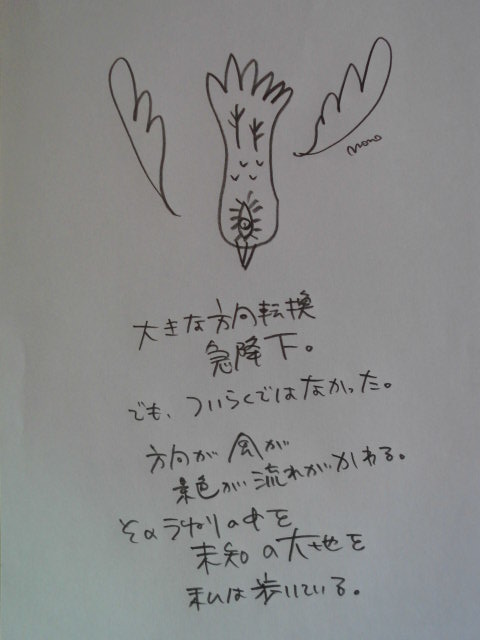 momo
大きな方向転換
急降下。
でも、ついらくではなかった。
方向が 風が
景色が 流れが かわる。
そのうねりの中を
未知の大地を
私は歩いている。